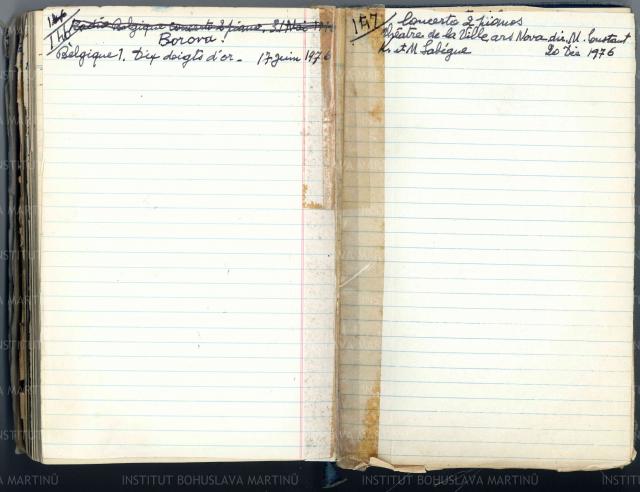 146
Radio Belgique concerto 2 pianos. 21 Mai 197
Borova.
Belgique 1. Dix doigts d'or. 17 juin 1976
157 Concerto 2 pianos
théâtre de la Ville, ars Nova dir. M. Constant
K. et M Labèque 20 Déc 1976
INSTITUT BOHUSLAVA MARTINŮ INSTITUT BOHUSLAVA MARTINŮ